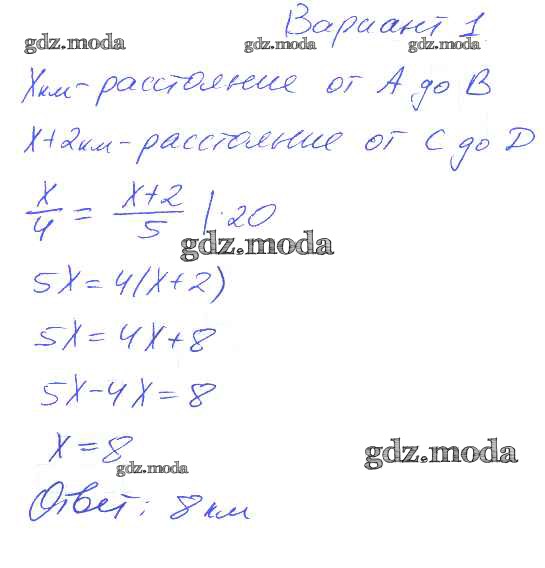 Вариант 1
gdz.moda gdz.moda gdz.moda
x км - расстояние от A до B
x+2 км - расстояние от C до D
x/4 = (x+2)/5 | · 20
gdz.moda
5x = 4(x+2)
5x = 4x+8
5x-4x=8
x=8
gdz.moda gdz.moda
Ответ: 8 км